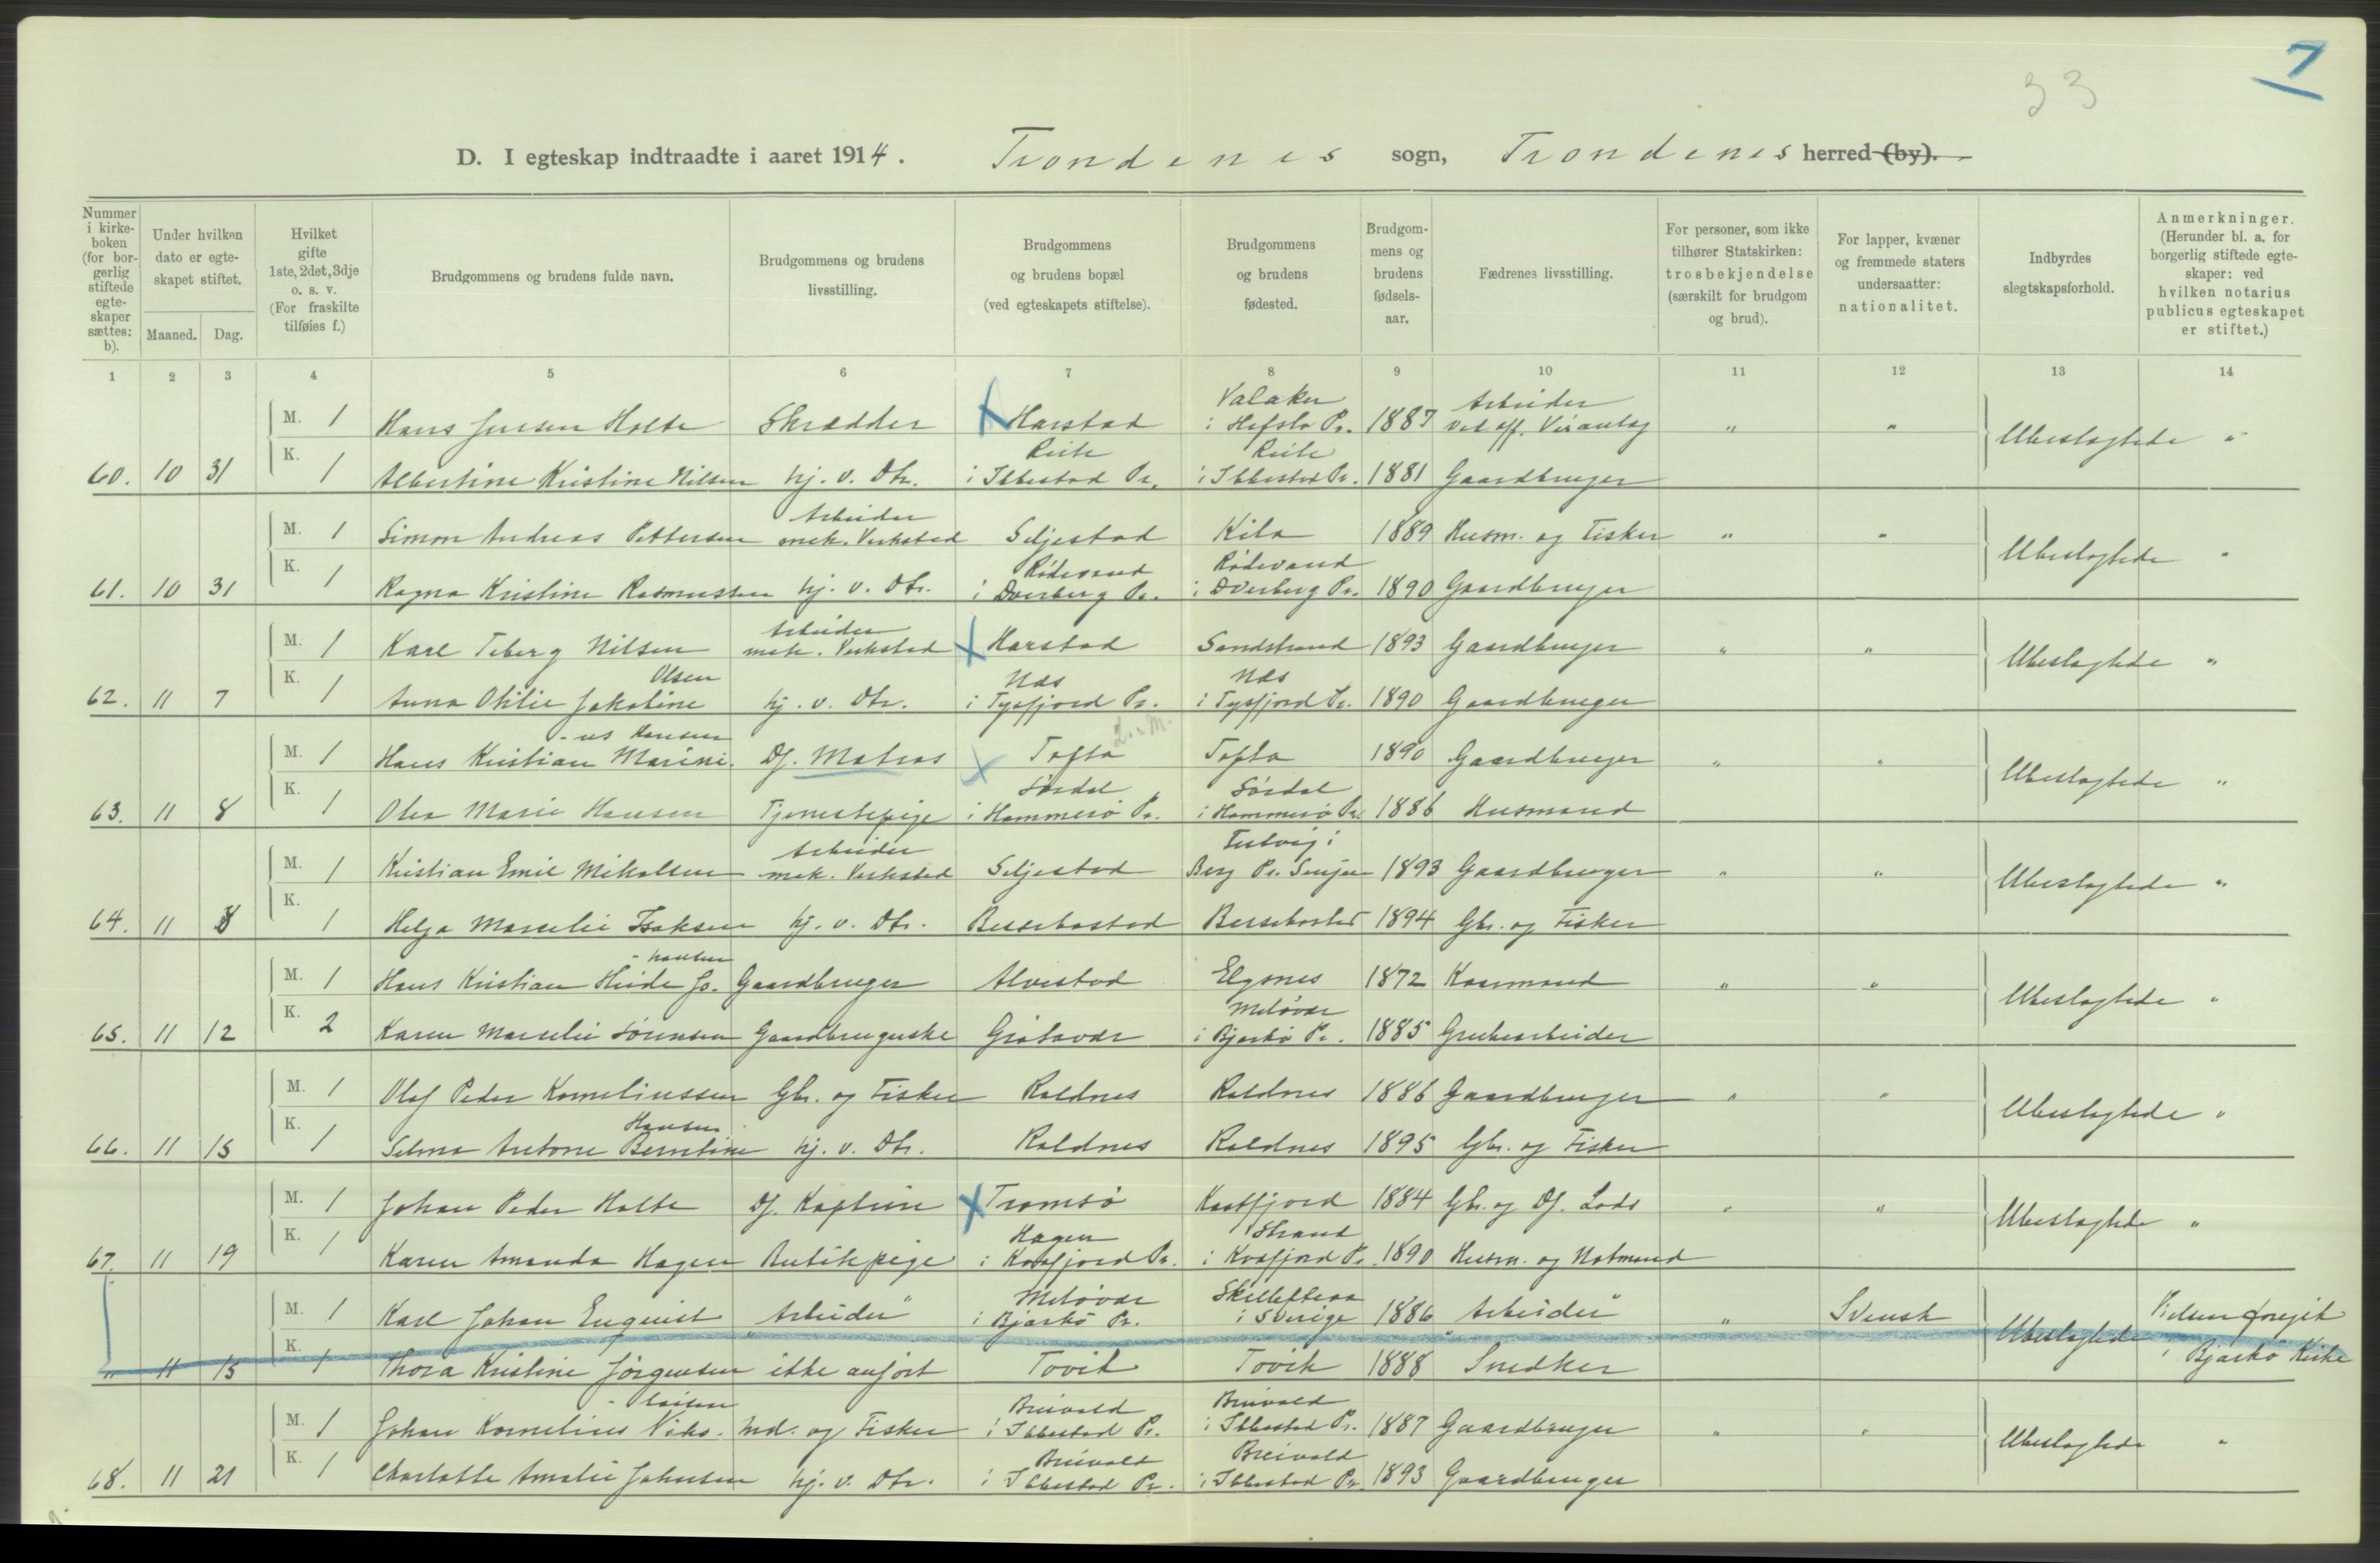 7
33
D. I egteskap indtraadte i aaret 1914. Trondenes sogn, Trondenes herred (by).
Nummer i kirkeboken (for borgerlig stiftede egteskaper sættes: b).
Under hvilken dato er egteskapet stiftet.
Maaned. Dag.
Hvilket gifte 1ste, 2det, 3dje o. s. v. (For fraskilte tilføies f.)
Brudgommens og brudens fulde navn.
Brudgommens og brudens livsstilling.
Brudgommens og brudens bopæl (ved egteskapets stiftelse).
Brudgommens og brudens fødested.
Brudgommens og brudens fødselsaar.
Fædrenes livsstilling.
For personer, som ikke tilhører Statskirken: trosbekjendelse (særskilt for brudgom og brud).
For lapper, kvæner og fremmede staters undersaatter: nationalitet.
Indbyrdes slegtskapsforhold.
Anmerkninger. (Herunder bl. a. for borgerlig stiftede egteskaper: ved hvilken notarius publicus egteskapet er stiftet.)
1 2 3 4 5 6 7 8 9 10 11 12 13 14
M. 1 Hans Jensen Holte Skrædder Harstad Valaker i Hafslo Pr. 1887 Arbeider ved off. Veianlæg " " Ubeslægtede "
60. 10 31 K. 1 Albertine Kristine Nilsen hj. v. Dtr. Reite i Ibbestad Pr. Reite i Ibbestad Pr. 1881 Gaardbruger
M. 1 Simon Andreas Pettersen Arbeider mek. Verksted Seljestad Kila 1889 Husm. og Fisker " " Ubeslægtede "
61. 10 31 K. 1 Ragna Kristine Rasmussen hj. v. Dtr. i Dverberg Pr. i Dverberg Pr. 1890 Gaardbruger
M. 1 Karl Teberg Nilsen Arbeider mek. Verksted Harstad Sandstrand 1893 Gaardbruger " " Ubeslægtede "
62. 11 7 K. 1 Anna Otilie Jakobine Olsen hj. v. Dtr. Næs i Tysfjord Pr. Næs i Tysfjord Pr. 1890 Gaardbruger
M. 1 Hans Kristian Marini-us Hansen Df. Matros Tofta Tofta 1890 Gaardbruger " " Ubeslægtede "
63. 11 8 K. 1 Olea Marie Hansen Tjenestepige Sørdal i Hammerø Pr. Sørdal i Hammerø Pr. 1886 Husmand
M. 1 Kristian Emil Mikalsen Arbeider mek. Verksted Seljestad Berg Pr. Senjen 1893 Gaardbruger " " Ubeslægtede "
64. 11 8 K. 1 Helga Marselie Isaksen hj. v. Dtr. Bessebostad Bessebostad 1894 Gbr. og Fisker
M. 1 Hans Kristian Heide Jo-hansen Gaardbruger Alvestad Elgsnes 1872 Kaarmand " " Ubeslægtede "
65. 11 12 K. 2 Karen Marselie Sørensen Gaardbrugerske Grøtavær Meløvær i Bjarkø Pr. 1885 Grubearbeider
M. 1 Olaf Peder Korneliussen Gbr. og Fisker Roldnes Roldnes 1886 Gaardbruger " " Ubeslægtede "
66. 11 15 K. 1 Selma Antone Berntine Hansen hj. v. Dtr. Roldnes Roldnes 1895 Gbr. og Fisker
M. 1 Johan Peder Holte Df. Kaptein Tromsø Kastfjord 1884 Gbr. og Df. Lods " " Ubeslægtede "
67. 11 19 K. 1 Karen Amanda Hagen Butikpige Hagen i Kvæfjord Pr. Strand i Kvæfjord Pr. 1890 Husm. og Notmand
M. 1 Karl Johan Enquist "Arbeider" Meløvær i Bjarkø Pr. Skellefteaa i Sverige 1886 "Arbeider" " Svensk Ubeslægtede Vielsen foregik i Bjarkø Kirke
" 11 15 K. 1 Thora Kristine Jørgensen ikke anført Tovik Tovik 1888 Snedker
M. 1 Johan Kornelius Niko-laisen Ind. og Fisker Breivold i Ibbestad Pr. Breivold i Ibbestad Pr. 1887 Gaardbruger " " Ubeslægtede "
68. 11 21 K. 1 Charlotte Amalie Johnsen hj. v. Dtr. Breivold i Ibbestad Pr. Breivold i Ibbestad Pr. 1893 Gaardbruger